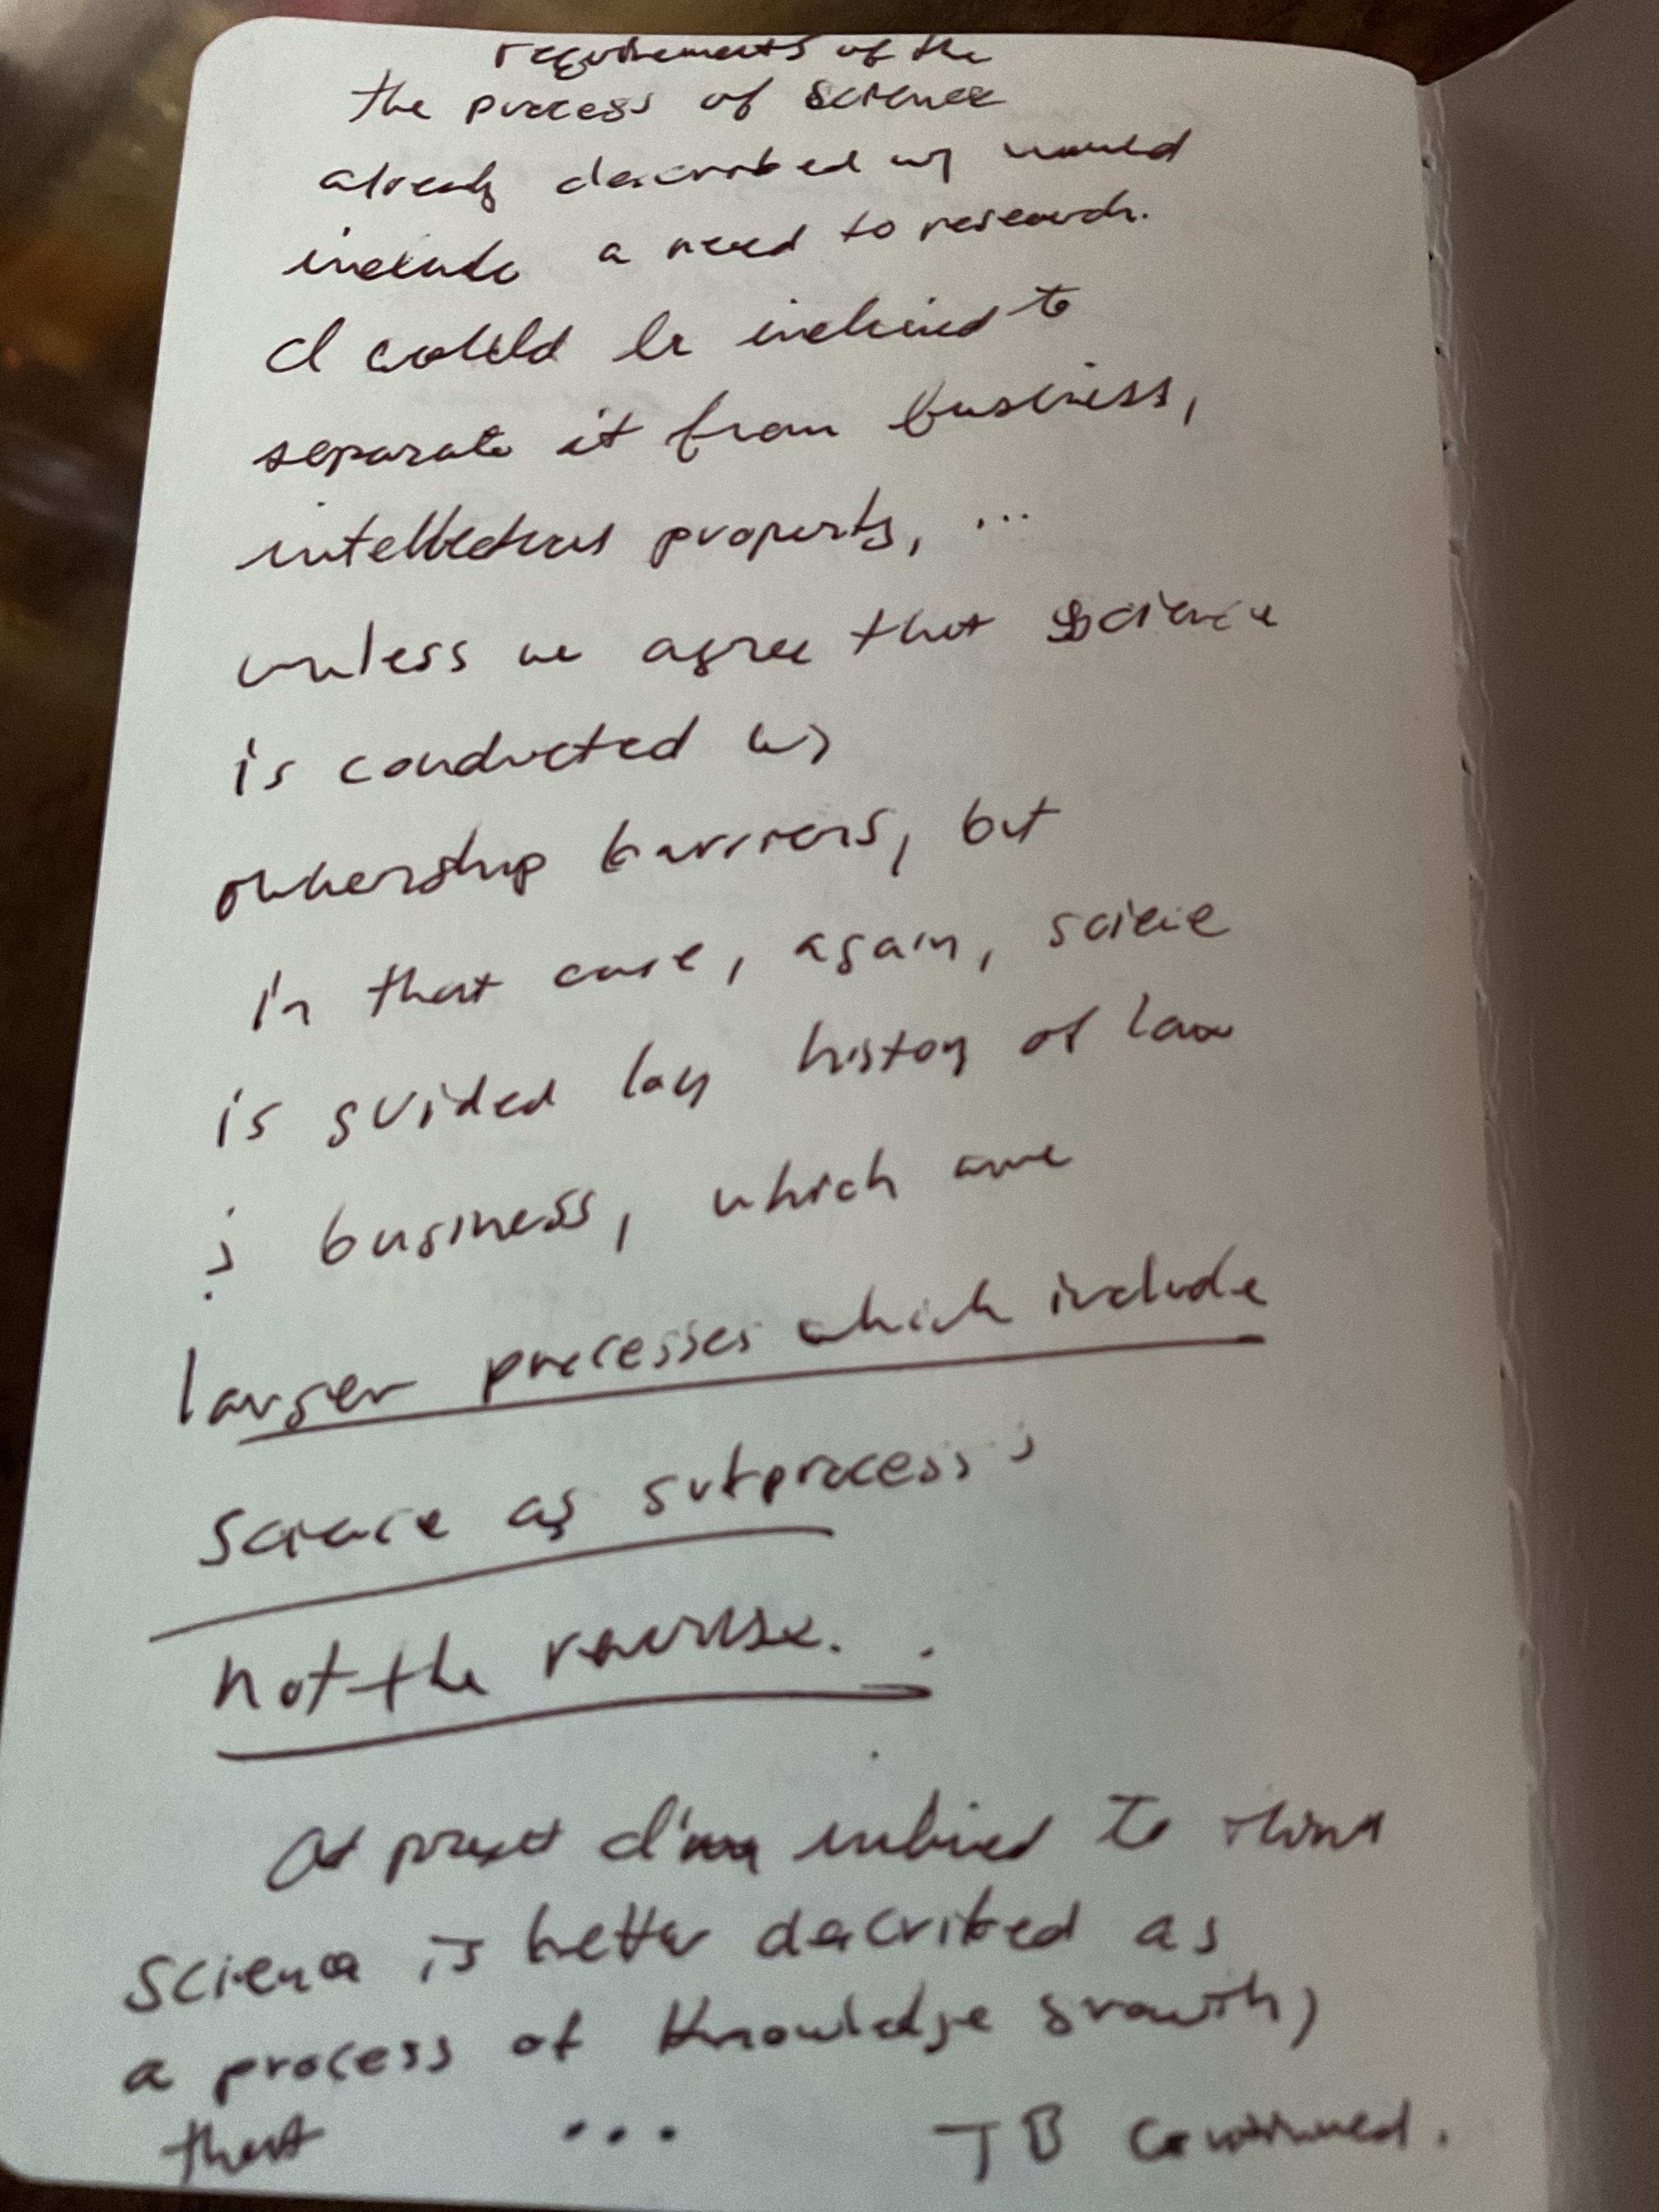 requirements of the
the process of science
already described w/ would
include a need to research.
I would be inclined to
separate it from business,
intellectual property, ...
unless we agree that science
is conducted w/
ownership barriers, but
in that case, again, science
is guided by history of law
; business, which are
larger processes which include
science as subprocess ;
not the reverse.
At present I'm inclined to think
Science is better described as
a process of knowledge growth,
that ... TB Continued.